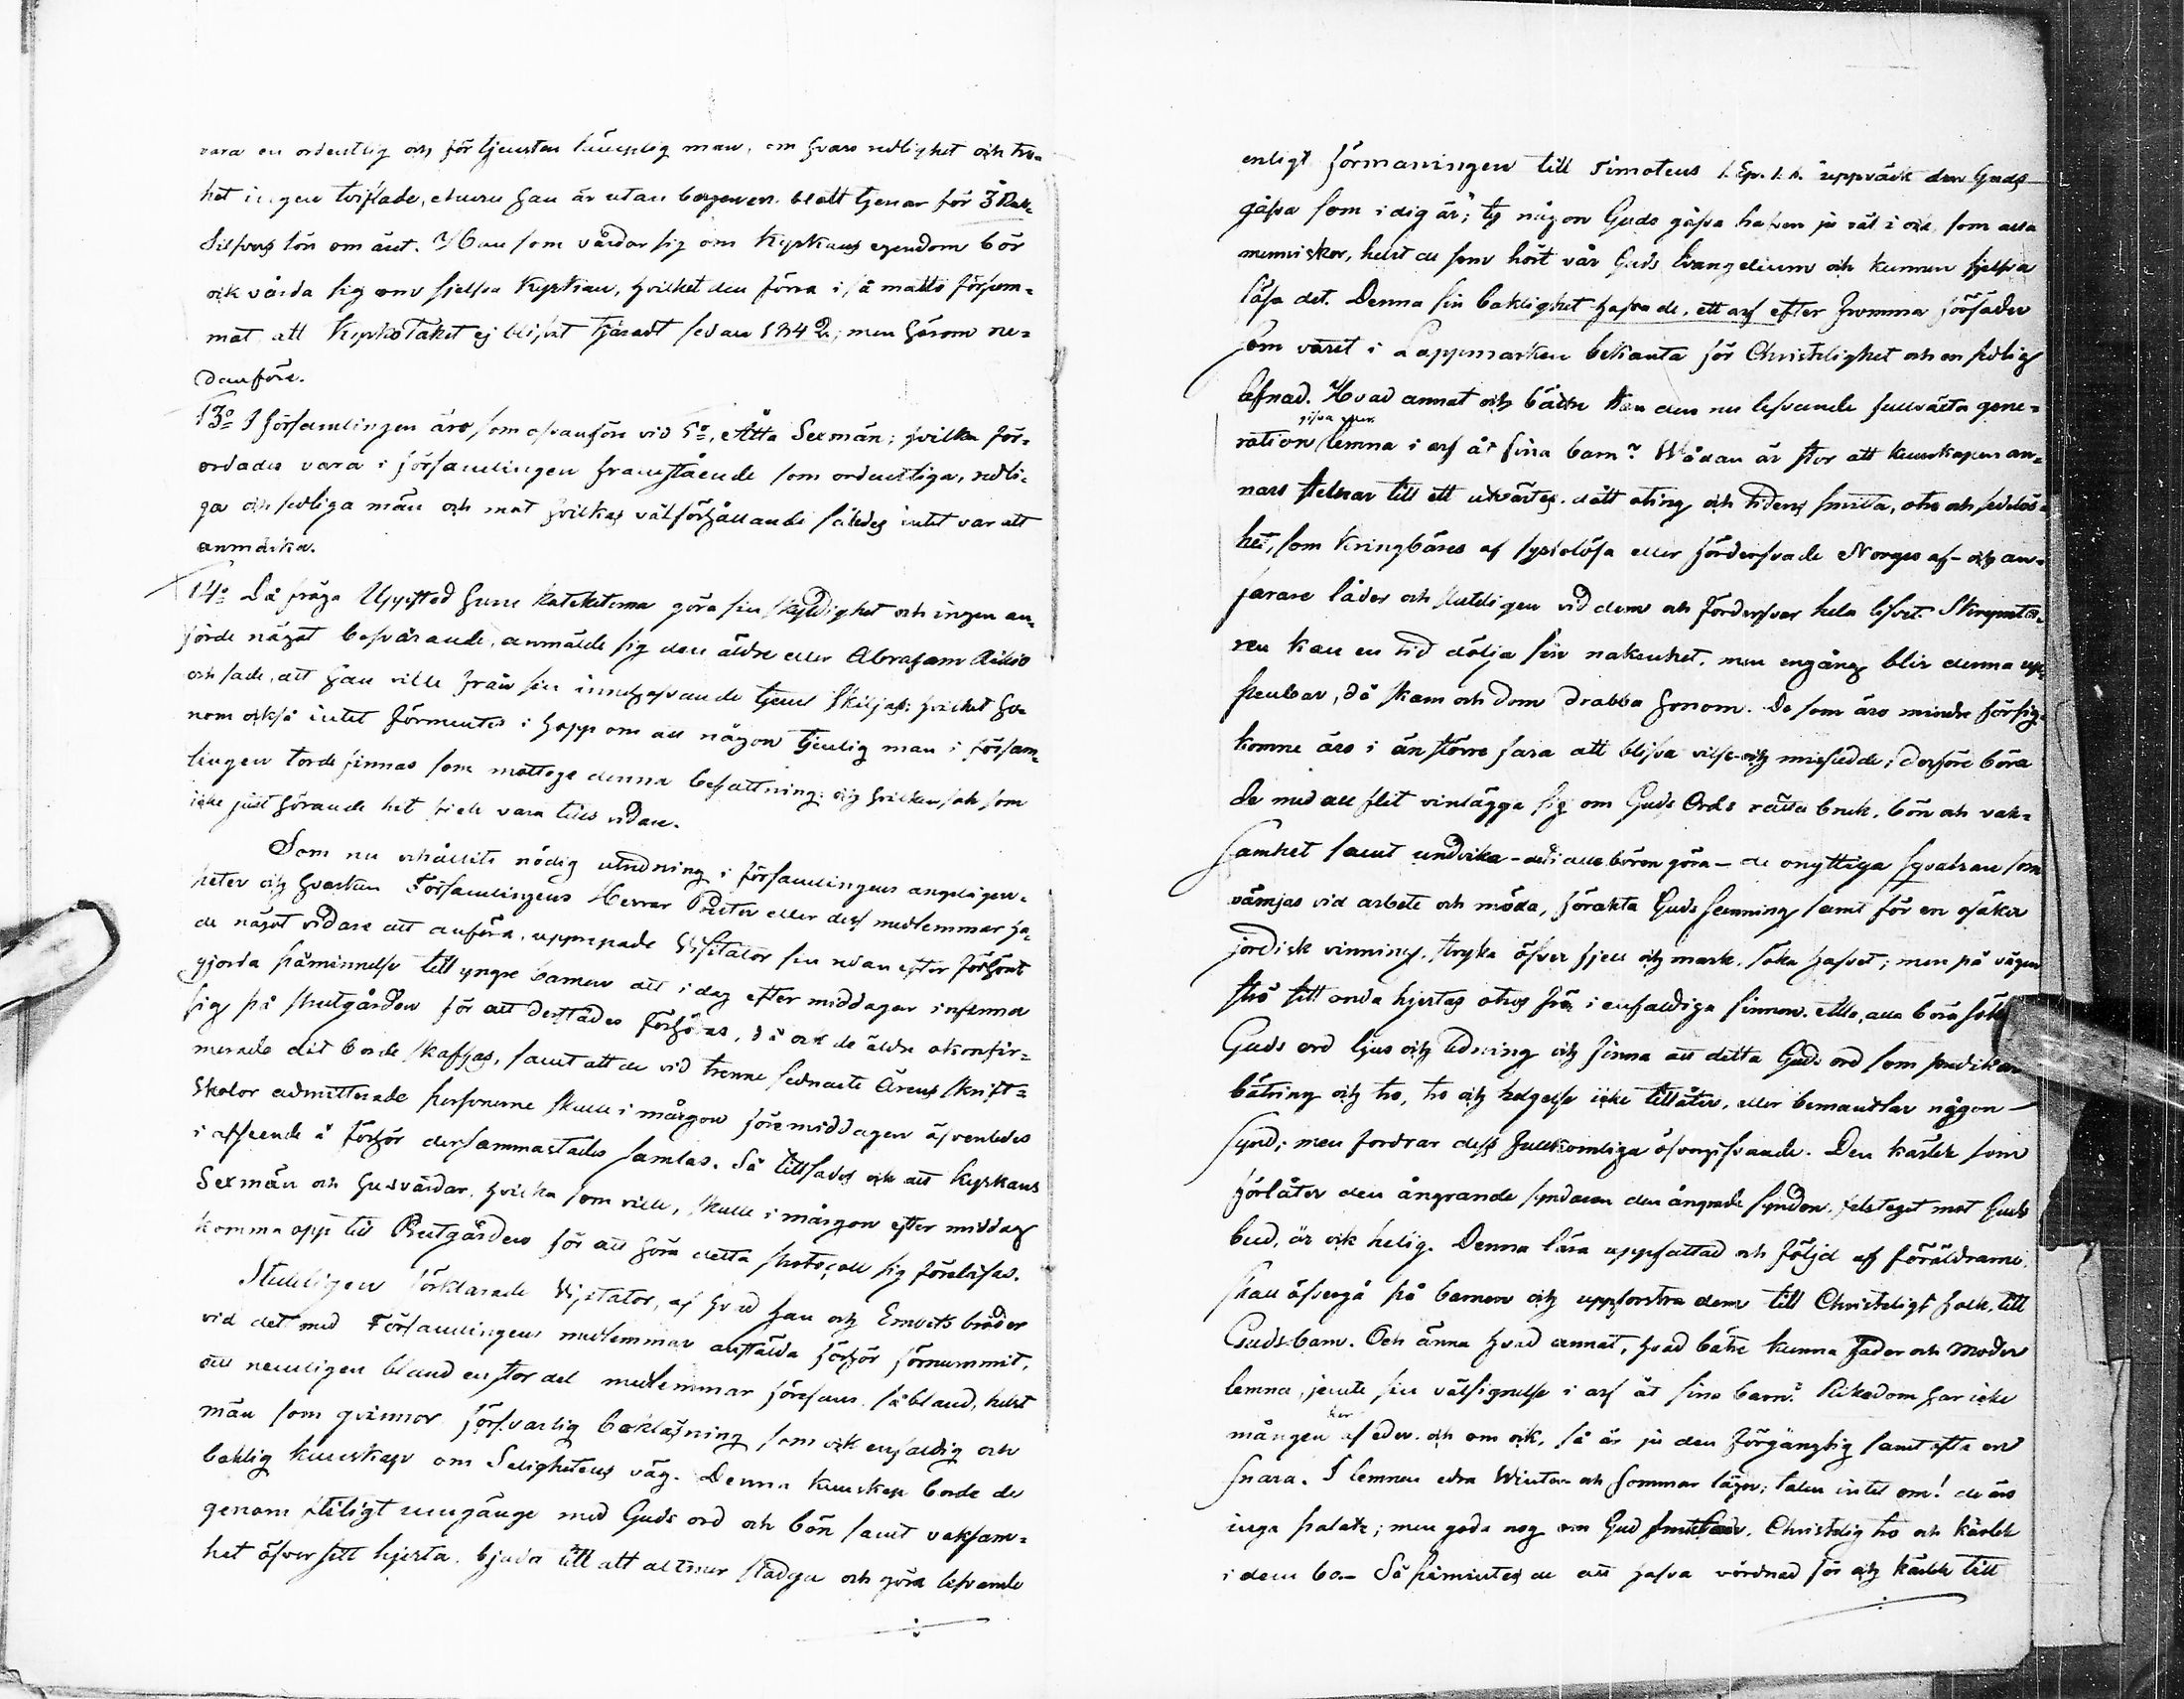 vara en ordentlig och för tjensten lämplig man, om hvars redlighet och tro-
het ingen tviflade, ehuru han är utan borgesven. blott tjenar för 3 Rdr
Silfvers lön om året. Han som vårdar sig om Kyrkans egendom bör
ock vårda sig om sjelfva Kyrkan, hvilket den förra i så måtto försum-
mat att Kyrkotaket ej blifvit tjäradt sedan 1842; men härom ne-
danföre.
13o I församlingen äro som ofvanföre vid 5o, Åtta Sexmän; hvilka för-
ordades vara i församlingen framstående som ordentliga, redli-
ga och sedliga män och mot hvilkas välförhållande således intet var att
anmärka.
14o Då fråga Uppstod huru Kateketerna göra sin skyldighet och ingen an-
förde något besvärande, anmälde sig den äldre eller Abraham Aikio
och sade, att han ville från sin innehafvande tjenst skiljas; hvilket ho-
nom också intet förmentes i hopp om att någon tjenlig man i försam-
lingen torde finnas som mottoge denna befattning; och hvilken sak som
icke just hörande hit fick vara tills vidare.
Som nu erhållits nödig utredning i församlingens angelägen-
heter och hvarken Församlingens Herrar Prester eller dess medlemmar ha-
de något vidare att anföra, upprepade Visitator sin redan efter förhöret
gjorda påminnelse till yngre barnen att i dag efter middagen infinna
sig på Prestgården för att derstädes förhöras, då ock de äldre okonfir-
merade dit borde skaffas, samt att de vid trenne sednaste årens skrift-
skolor admitterade personerne skulle i morgon föremiddagen äfvenledes
i afseende å förhör dersammastädes samlas. Så tillsades ock att Kyrkans
Sexmän och Husvärdar, hvilka som ville, skulle i morgon efter middag
komma opp till Prestgården för att höra detta protocoll sig föreläsas.
Slutligen förklarade Visitator, af hvad han och Embetsbröder
vid det med Församlingens medlemmar anstälda förhör förnummit,
att nemligen bland en stor del medlemmar förefans, så bland, helst
män som qvinnor försvarlig bokläsning som ock enfaldig och
boklig kunskap om Salighetens väg. Denna kunskap borde de
genom flitigt umgänge med Guds ord och bön samt vaksam-
het öfver sitt hjerta, bjuda till att altmer stadga och göra lefvande
enligt förmaningen till Timoteus 1. Ep. 1. 6. "uppväck den Guds
gåfva som i dig är"; ty någon Guds gåfva hafven ju väl i ock som alla
menniskor, helst de som hört vår Guds Evangelium och kunnen sjelfva
läsa det. Denna sin boklighet hafva de, ett arf efter fromma förfäder
som varit i Lappmarken bekanta för Christelighet och en sedlig
lefnad. Hvad annat och bättre kan den nu lefvande fullväxta gene-
ration lemna i arf åt sina barn? Wådan är stor att kunskapen an-
nars stelnar till ett utvärtes, dött oting och tidens smitta, otro och sedelös-
het, som kringbäres af sysslolösa eller förderfvade Norges af- och an-
farare låder och slutligen vid dem och förderfvar hela lifvet. Skrymta-
ren kan en tid dölja sin nakenhet, men engång blir denna up-
penbar, då skam och dom drabba honom. De som äro mindre försig-
komne äro i än större fara att blifva vilse och missledde; derföre böra
de med all flit vinlägga sig om Guds Ords rätta bruk, bön och vak-
samhet samt undvika - det i alla bören göra - de onyttiga sqvalran som
vämjas vid arbete och möda, förakta Guds sanning samt för en osäker
jordisk vinning, stryka öfver fjell och mark, söka hafvet; men på vägen
strö sitt onda hjertas otros frö i enfaldiga sinnen. Alle, alla böra söka
Guds ord ljus och ledning och finna att detta Guds ord som predikar
bätring och tro, tro och helgelse icke tillåter, eller bemantlar någon
synd; men fordrar dess fullkomliga öfvergifvande. Den kärlek som
förlåter den ångrande syndaren den ångrade synden, felsteget mot Guds
bud, är ock helig. Denna lära uppfattad och följd af föräldrarne,
skall öfvergå på barnen och uppfostra dem till Christeligt folk, till
Guds barn. Och änna hvad annat, hvad bätre kunna fader och moder
lemna, jemte sin välsignelse i arf åt sina barn? Rikedom har icke
mången här af eder, och om ock, så är ju den förgänglig samt ofta en
snara. I lemnen edra Winter och Sommar läger; talen intet om! de äro
inga palats; men goda nog om Gud, Christelig tro och kärlek
i dem bo.- Så påmintes de att hafva vördnad för och kärlek till